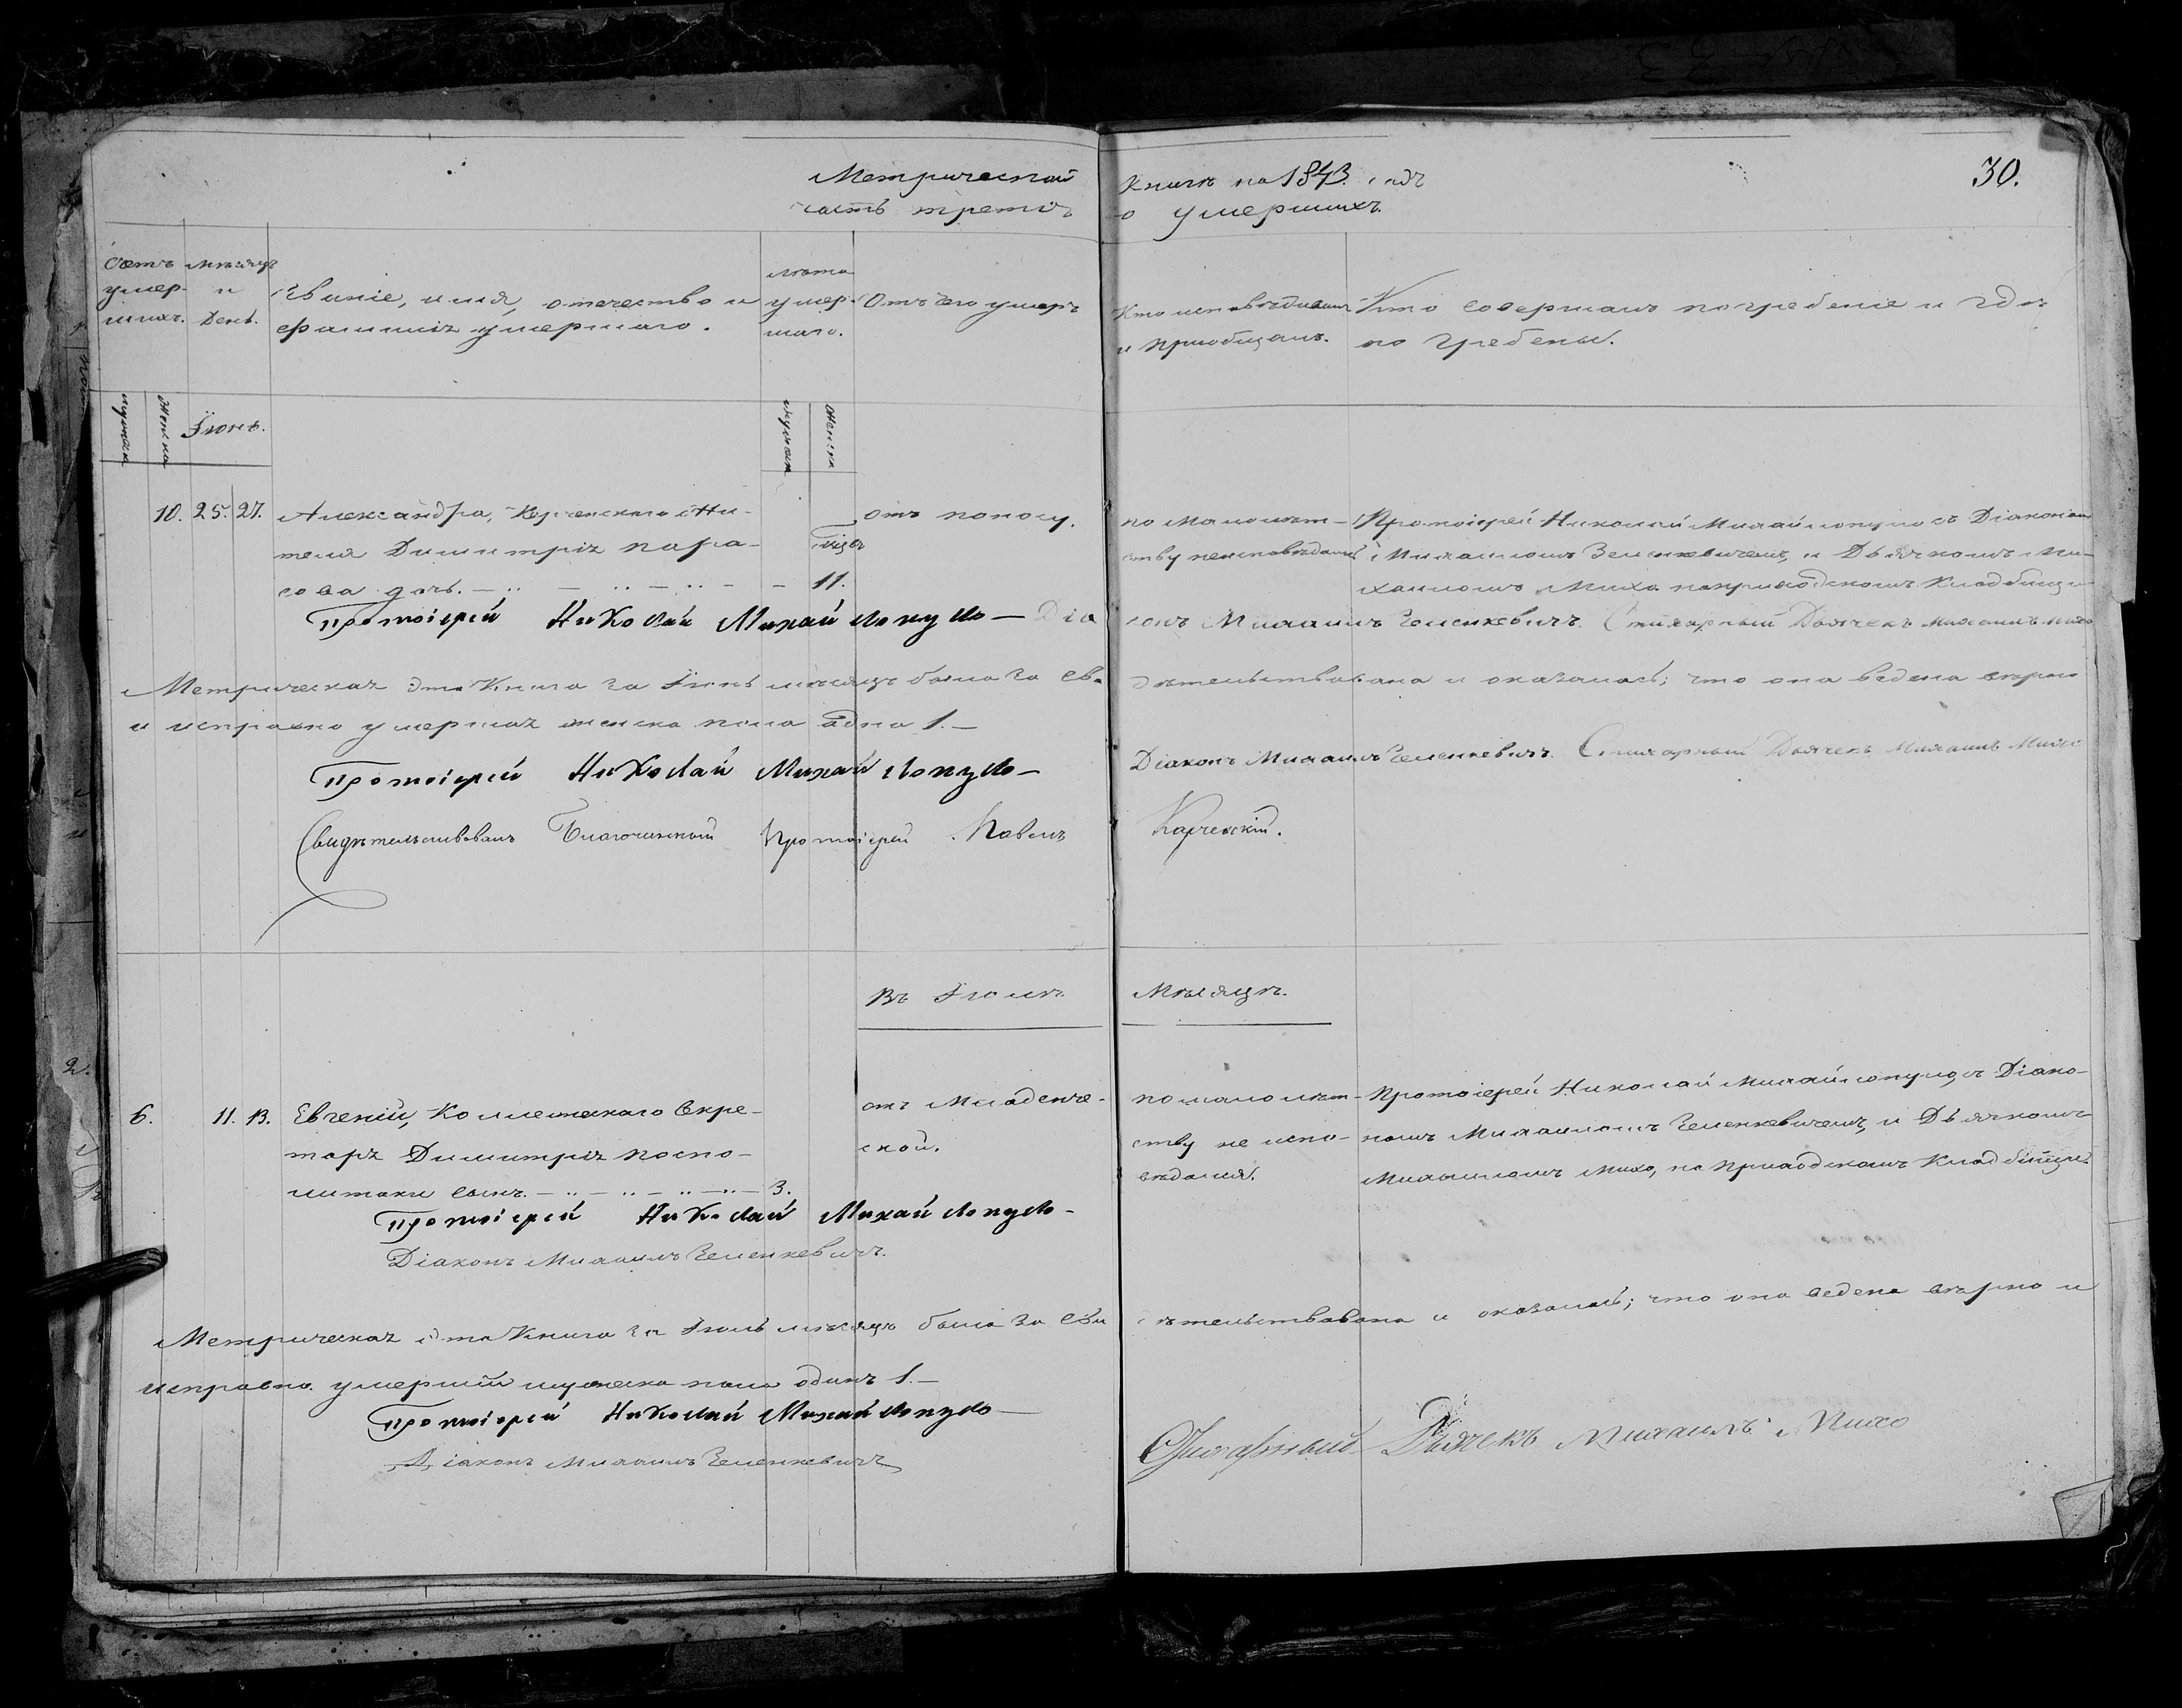 Метрической Книги на 1843. годъ
часть третія о умершихъ.
30.
Счетъ умер-шихъ.
Мѣсяцъ и День.
Званіе, имя, отечество и
фамилія умершаго.
лѣта умер-шаго.
Отъ чего умеръ
Кто исповѣдывалъ
и приобщалъ.
Кто совершалъ погребеніе и гдѣ
погребены.
мужеска
женска
Іюнь.
мужеска
женска
10. 25. 27. Александра, Керченскаго жи-
теля Димитрія пара-
сова дочь.
11.
отъ поносу.
по малолѣт-
ству неисповѣдана
Протоіерей Николай Михайлопуло съ Діакономъ
Михаиломъ Зеленкевичемъ, и Дьячкомъ Ми-
хаиломъ Михо на приходскомъ Кладбищѣ
Протоіерей Николай Михайлопуло — Діаконъ Михаилъ Зеленкевичъ. Стихарный Дьячекъ Михаилъ Михо
Метрическая эта Книга за Іюнь мѣсяцъ была засвидѣтельствована и оказалась; что она ведена вѣрно
и исправно умершая женска пола одна 1. —
Протоіерей Николай Михайлопуло —
Діаконъ Михаилъ Зеленкевичъ. Стихарный Дьячекъ Михаилъ Михо
Свидѣтельствовалъ Благочинный Протоіерей Павелъ
Въ Іюлѣ Мѣсяцѣ.
6. 11. 13. Евгеній, Коллежскаго Секре-
таря Димитрія поспо-
литаки сынъ. 3.
отъ Младенче-
ской.
по малолѣт-
ству не испо-
вѣдался.
Протоіерей Николай Михайлопуло, съ Діако-
номъ Михаиломъ Зеленкевичемъ, и Дьячкомъ
Михаиломъ Михо, на Приходскомъ Кладбищѣ
Протоіерей Николай Михайлопуло —
Діаконъ Михаилъ Зеленкевичъ.
Метрическая эта Книга за Іюль мѣсяцъ была засвидѣтельствована и оказалась; что она ведена вѣрно и
исправно. умершій мужеска пола одинъ 1. —
Протоіерей Николай Михайлопуло —
Діаконъ Михаилъ Зеленкевичъ
Стихарный Дьячекъ Михаилъ Михо